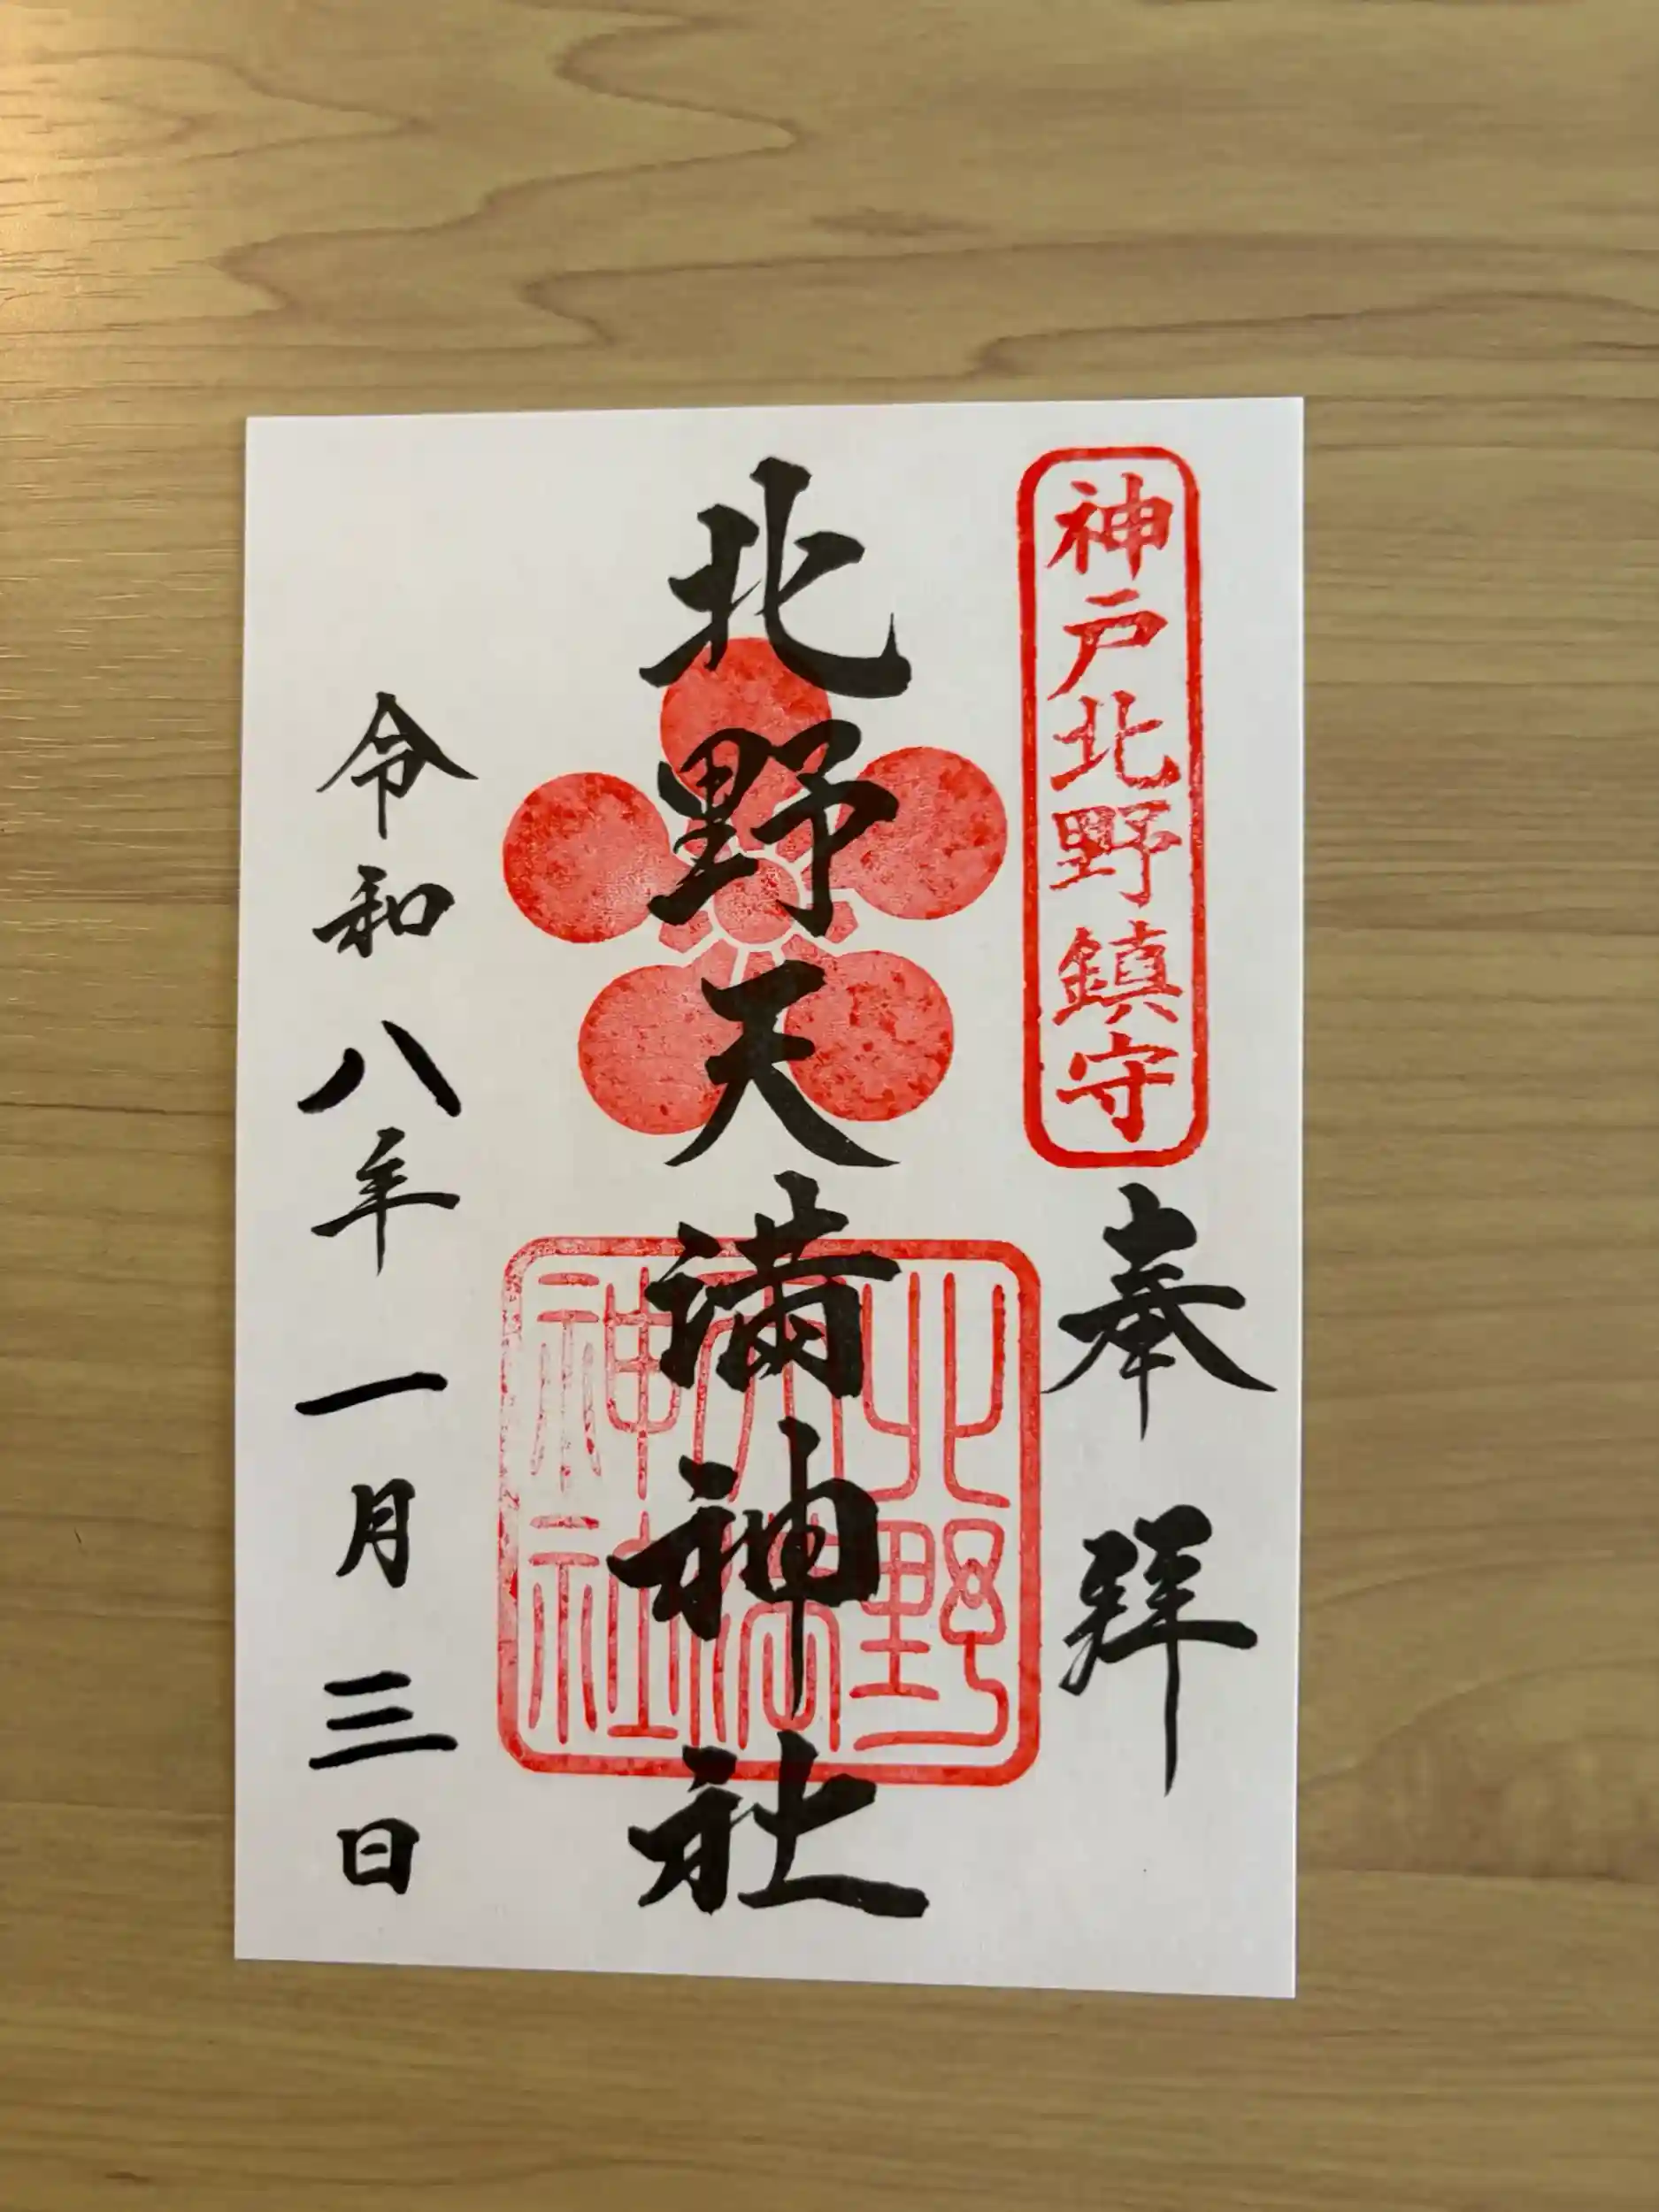 神戸北野鎮守
奉拝
北野天満神社
北野
天満
神社
令和八年一月三日